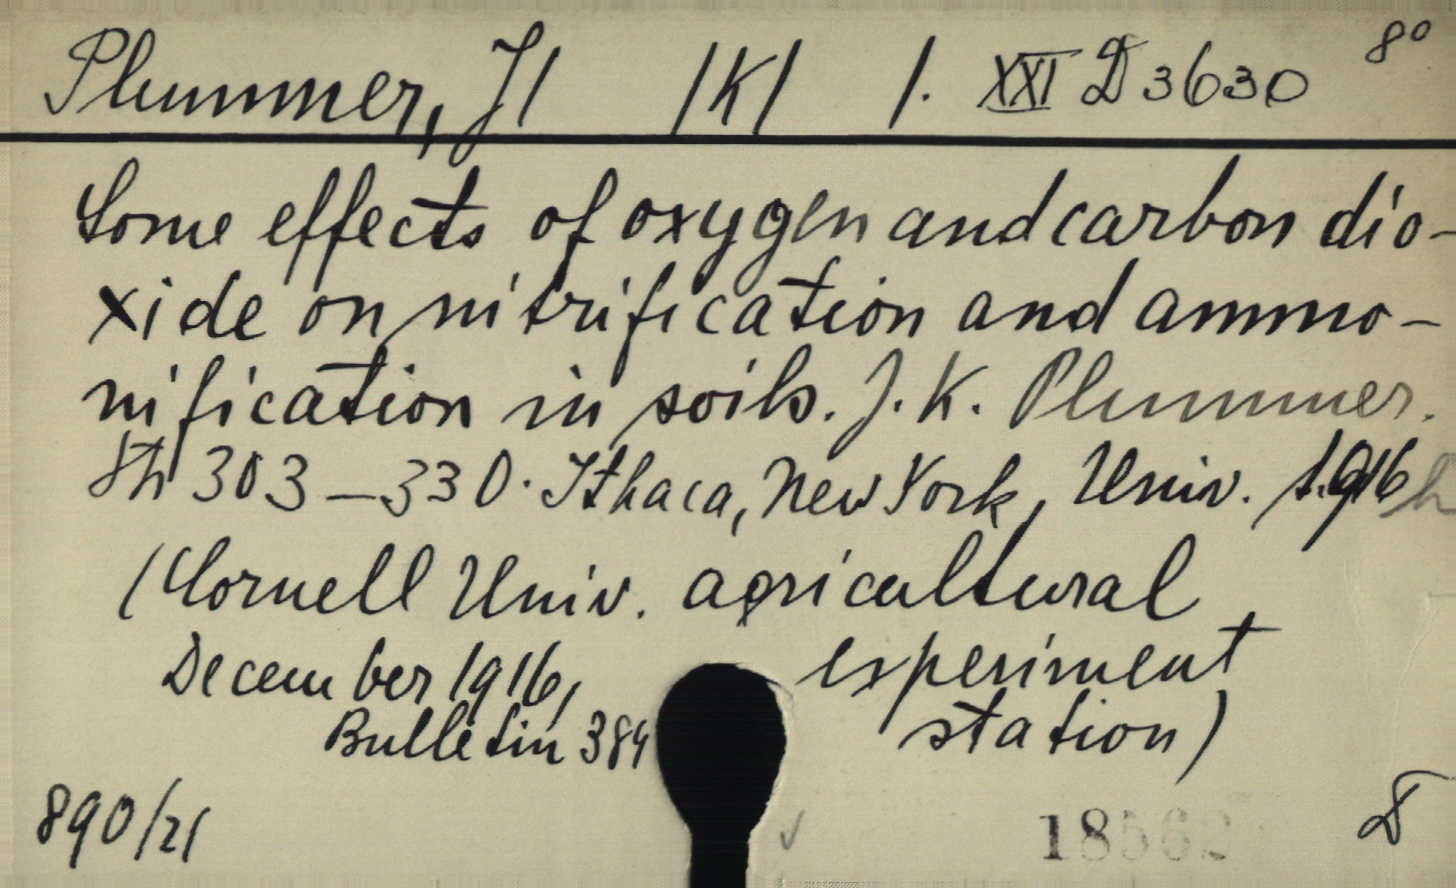 Plummer, J/ /K/ /. XXI D 3630 8°
Some effects of oxygen and carbon dio-
xide on nitrification and ammo-
nification in soils. J. K. Plummer.
303-330. Ithaca, New York, Univ. 1916
(Cornell Univ. agricultural
experiment
station)
December 1916,
Bulletin 384
890/21
18562